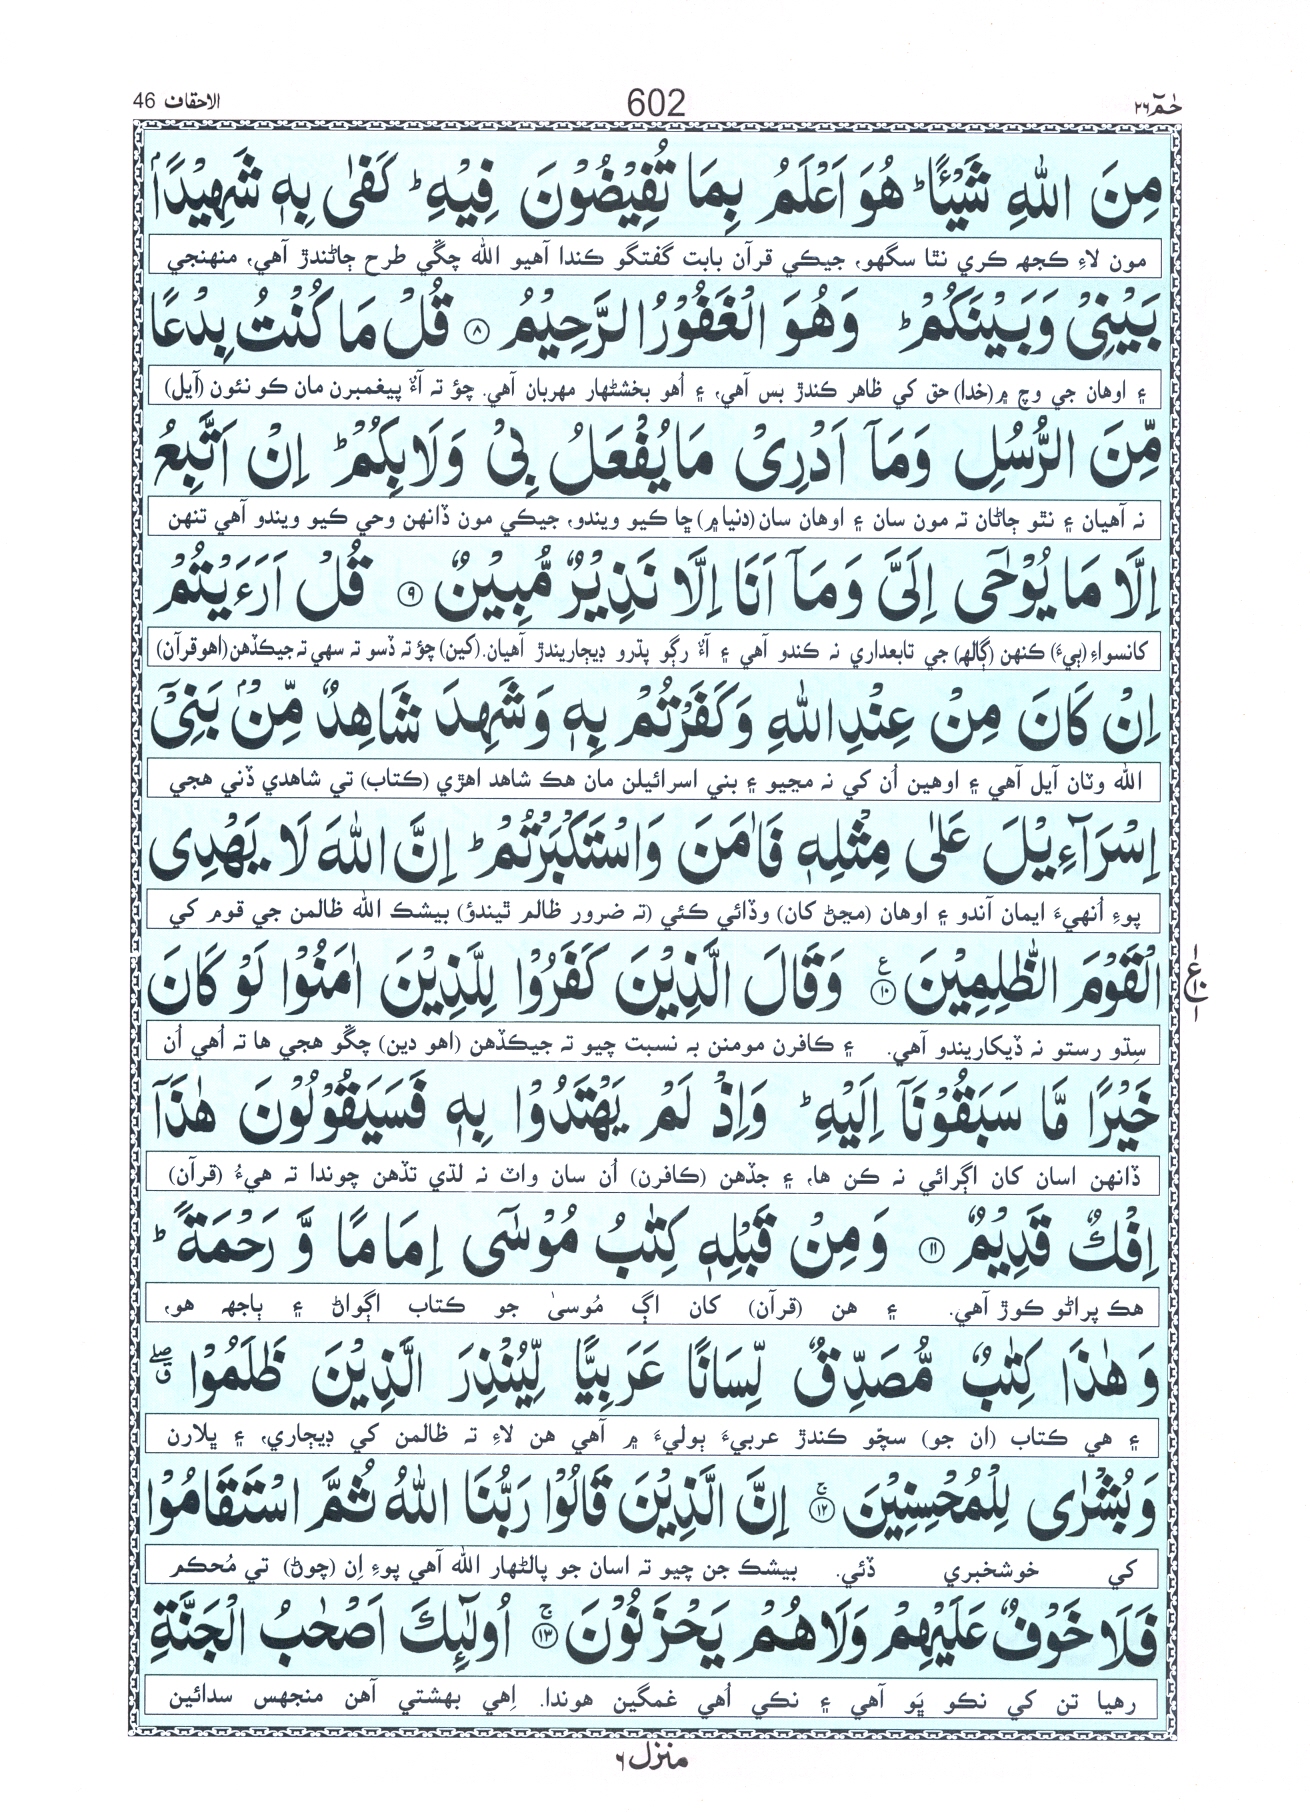 الاحقاف 46
602
حٰمٓ ٢٦
مِنَ اللّٰهِ شَيْـًٔا ؕ هُوَ اَعْلَمُ بِمَا تُفِيْضُوْنَ فِيْهِ ؕ كَفٰى بِهٖ شَهِيْدًاۢ
مون لاءِ ڪجهہ ڪري نٿا سگهو، جيڪي قرآن بابت گفتگو ڪندا آهيو الله چڱي طرح ڄاڻندڙ آهي، منهنجي
بَيْنِيْ وَبَيْنَكُمْ ؕ وَهُوَ الْغَفُوْرُ الرَّحِيْمُ ۝٨ قُلْ مَا كُنْتُ بِدْعًا
۽ اوهان جي وچ ۾ (خدا) حق کي ظاهر ڪندڙ بس آهي، ۽ اُهو بخشڻهار مهربان آهي. چؤ تہ آءٌ پيغمبرن مان ڪو نئون (آيل)
مِّنَ الرُّسُلِ وَمَآ اَدْرِىْ مَا يُفْعَلُ بِىْ وَلَا بِكُمْ ؕ اِنْ اَتَّبِعُ
نہ آهيان ۽ نٿو ڄاڻان تہ مون سان ۽ اوهان سان (دنيا ۾) ڇا ڪيو ويندو، جيڪي مون ڏانهن وحي ڪيو ويندو آهي تنهن
اِلَّا مَا يُوْحٰٓى اِلَىَّ وَمَآ اَنَا اِلَّا نَذِيْرٌ مُّبِيْنٌ ۝٩ قُلْ اَرَءَيْتُمْ
کانسواءِ (ٻيءَ) ڪنهن (ڳالهہ) جي تابعداري نہ ڪندو آهي ۽ آءٌ رڳو پڌرو ڊيڄاريندڙ آهيان. (کين) چؤ تہ ڏسو تہ سهي تہ جيڪڏهن (اهو قرآن)
اِنْ كَانَ مِنْ عِنْدِ اللّٰهِ وَكَفَرْتُمْ بِهٖ وَشَهِدَ شَاهِدٌ مِّنْۢ بَنِىْٓ
الله وٽان آيل آهي ۽ اوهين اُن کي نہ مڃيو ۽ بني اسرائيلن مان هڪ شاهد اهڙي (ڪتاب) تي شاهدي ڏني هجي
اِسْرَآءِيْلَ عَلٰى مِثْلِهٖ فَاٰمَنَ وَاسْتَكْبَرْتُمْ ؕ اِنَّ اللّٰهَ لَا يَهْدِى
پوءِ اُنهيءَ ايمان آندو ۽ اوهان (مڃڻ کان) وڏائي ڪئي (تہ ضرور ظالم ٿيندؤ) بيشڪ الله ظالمن جي قوم کي
الْقَوْمَ الظّٰلِمِيْنَ ۝١٠ ع وَقَالَ الَّذِيْنَ كَفَرُوْا لِلَّذِيْنَ اٰمَنُوْا لَوْ كَانَ
سِڌو رستو نہ ڏيکاريندو آهي. ۽ ڪافرن مومنن بہ نسبت چيو تہ جيڪڏهن (اهو دين) چڱو هجي ها تہ اُهي اُن
خَيْرًا مَّا سَبَقُوْنَآ اِلَيْهِ ؕ وَاِذْ لَمْ يَهْتَدُوْا بِهٖ فَسَيَقُوْلُوْنَ هٰذَآ
ڏانهن اسان کان اڳرائي نہ ڪن ها، ۽ جڏهن (ڪافرن) اُن سان واٽ نہ لڌي تڏهن چوندا تہ هيءُ (قرآن)
اِفْكٌ قَدِيْمٌ ۝١١ وَمِنْ قَبْلِهٖ كِتٰبُ مُوْسٰٓى اِمَامًا وَّ رَحْمَةً ؕ
هڪ پراڻو ڪوڙ آهي. ۽ هن (قرآن) کان اڳ مُوسيٰ جو ڪتاب اڳواڻ ۽ ٻاجهہ هو،
وَهٰذَا كِتٰبٌ مُّصَدِّقٌ لِّسَانًا عَرَبِيًّا لِّيُنْذِرَ الَّذِيْنَ ظَلَمُوْا ۖق
۽ هي ڪتاب (ان جو) سچّو ڪندڙ عربيءَ ٻوليءَ ۾ آهي هن لاءِ تہ ظالمن کي ڊيڄاري، ۽ ڀلارن
وَبُشْرٰى لِلْمُحْسِنِيْنَ ۝١٢ۚ اِنَّ الَّذِيْنَ قَالُوْا رَبُّنَا اللّٰهُ ثُمَّ اسْتَقَامُوْا
کي خوشخبري ڏئي. بيشڪ جن چيو تہ اسان جو پالڻهار الله آهي پوءِ اِن (چوڻ) تي مُحڪم
فَلَا خَوْفٌ عَلَيْهِمْ وَلَا هُمْ يَحْزَنُوْنَ ۝١٣ۚ اُولٰٓئِكَ اَصْحٰبُ الْجَنَّةِ
رهيا تن کي نڪو ڀَو آهي ۽ نڪي اُهي غمگين هوندا. اِهي بهشتي آهن منجهس سدائين
منزل ٦